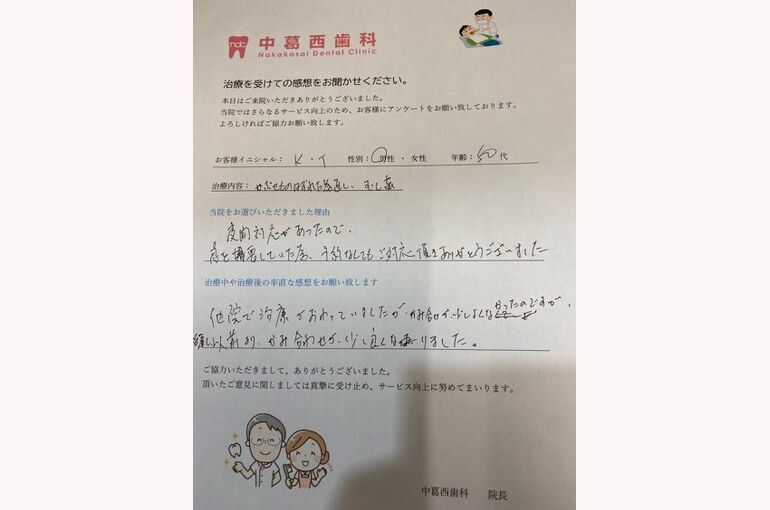 mdc
中葛西歯科
Nakakasai Dental Clinic
治療を受けての感想をお聞かせください。
本日はご来院いただきありがとうございました。
当院ではさらなるサービス向上のため、お客様にアンケートをお願い致しております。
よろしければご協力お願い致します。
お客様イニシャル: K・T 性別:男性・女性 年齢:50代
治療内容: かぶせものはずれた 、むし歯
当院をお選びいただきました理由
夜間対応があったので、
していた為、予約なしでもご対応頂きありがとうございました
治療中や治療後の率直な感想をお願い致します
他院で治療がおわっていましたが、かみ合せが少しよくなかったのですが、
前より、かみ合わせが、少し良くなりました。
ご協力いただきまして、ありがとうございました。
頂いたご意見に関しましては真摯に受け止め、サービス向上に努めてまいります。
中葛西歯科 院長